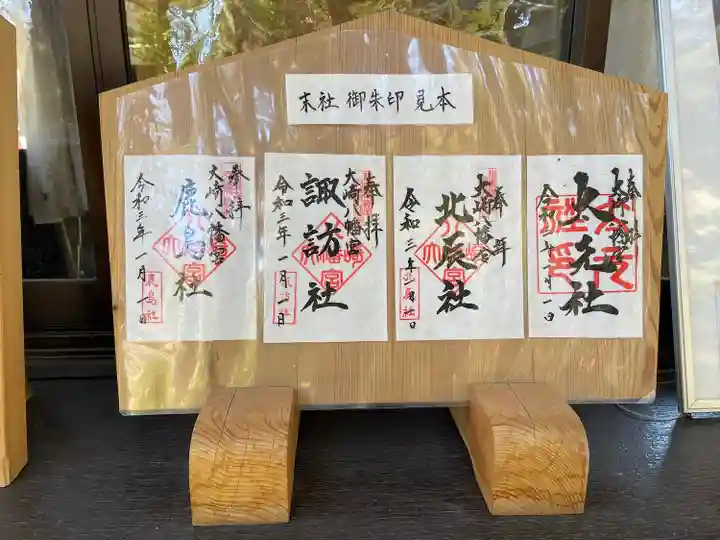 末社 御朱印 見本
奉拝
大崎八幡宮
大元社
奉拝
大崎八幡宮
北辰社
令和三年
奉拝
大崎八幡宮
諏訪社
令和三年 一月一日
奉拝
大崎八幡宮
鹿島社
令和三年 一月一日
鹿島社